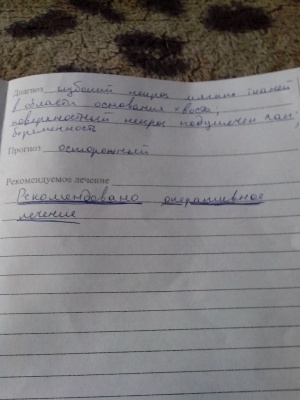 Диагноз глубокий некроз мягких тканей
в области основания хвоста,
поверхностный некроз подушечек лап,
беременность
Прогноз осторожный
Рекомендуемое лечение
Рекомендовано оперативное
лечение